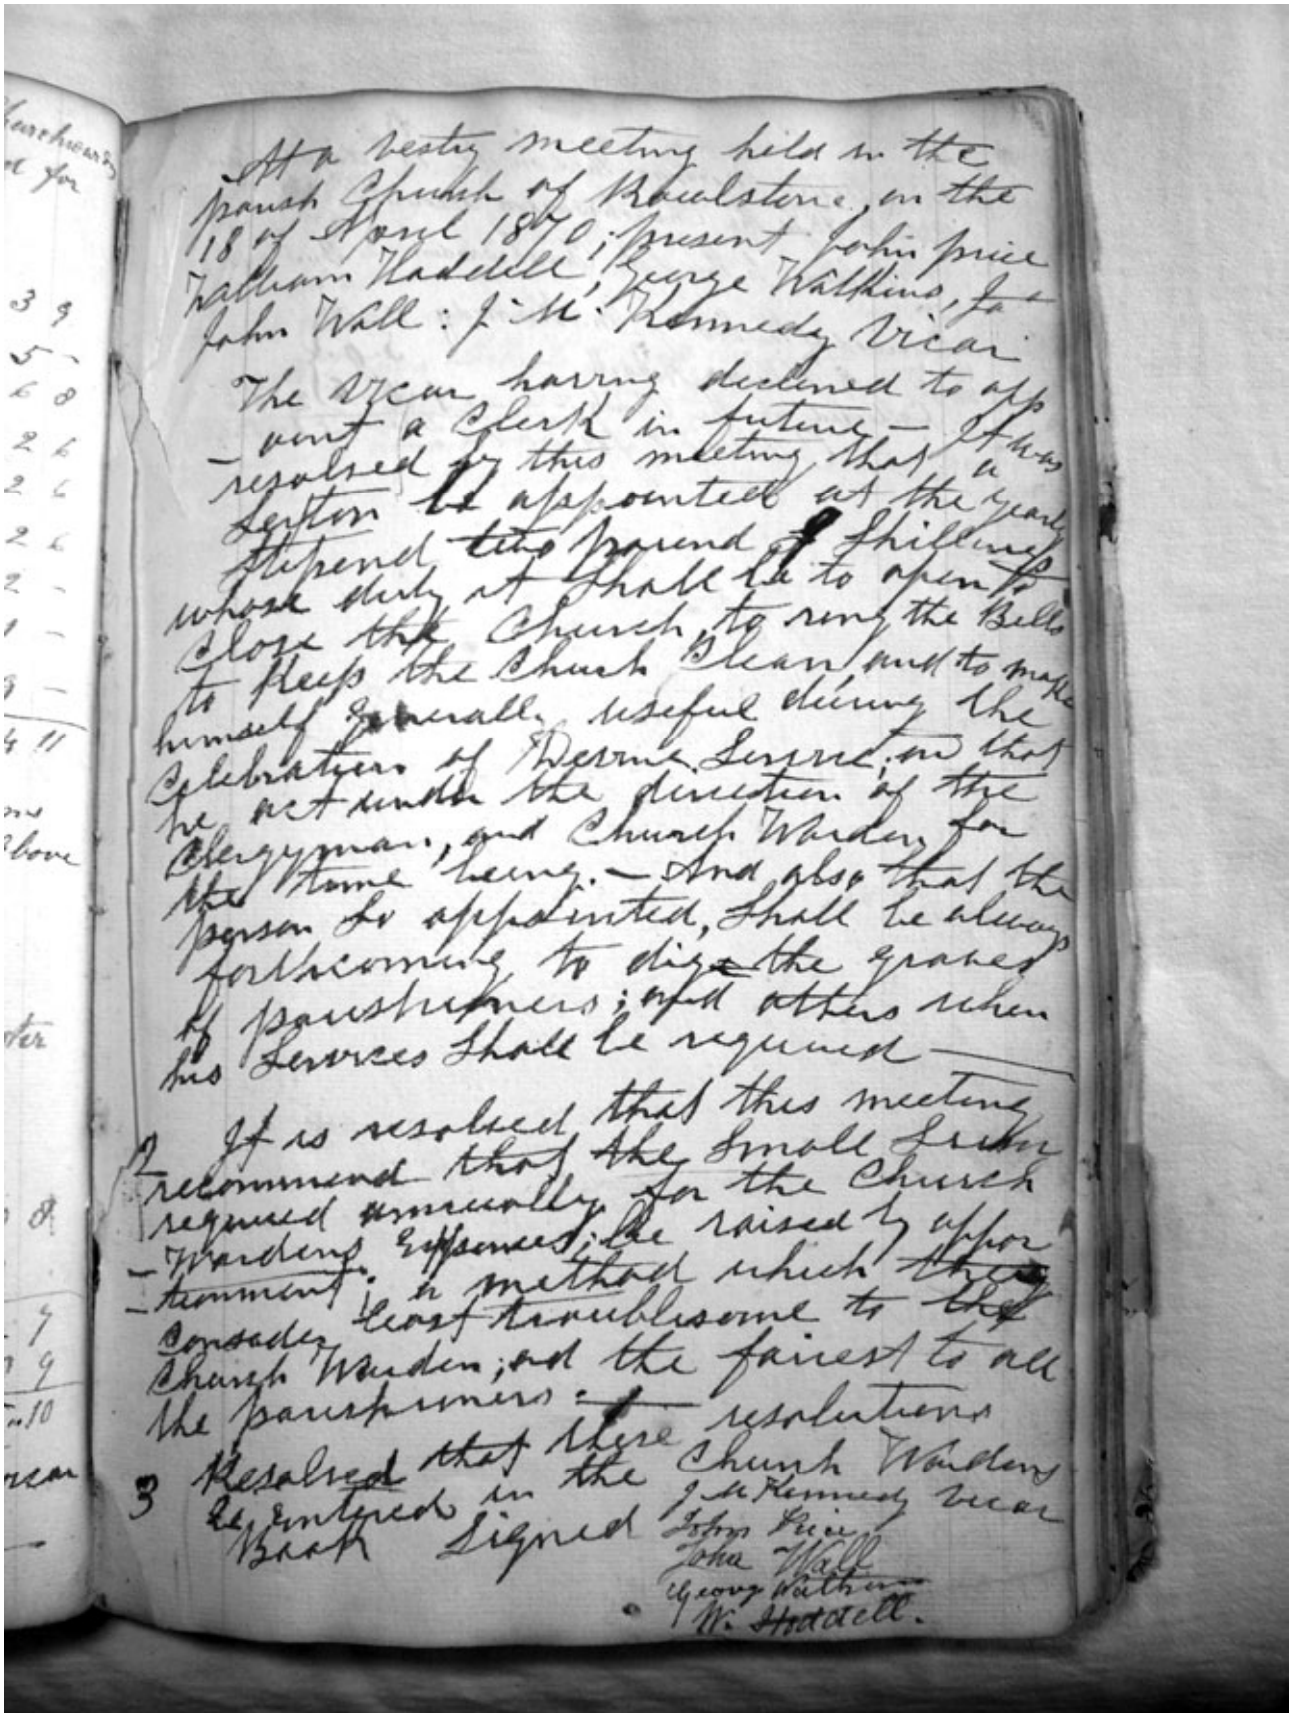 Churchwarden
d for
3 9
5 -
6 8
2 6
2 6
2 6
2 -
1 -
9 -
4 11
above
8
7
9
10
At a vestry meeting held in the
parish Church of Rowlstone, on the
18 of April 1870; present John price
William Hoddell, George Watkins,
John Wall: J. M. Kennedy Vicar
The vicar having declined to app
- oint a Clerk in future - It was
resolved by this meeting, that a
Sexton be appointed at the yearly
stipend two pound Shillings
whose duty it shall be to open &
Close the Church, to ring the Bells
to keep the Church Clean, and to make
himself generally useful during the
Celebration of Devine Service, on that
he act under the direction of the
Clergyman, and Church Warden for
the time being. - And also that the
person so appointed, shall be always
forthcoming to dig the graves
of parishioners; and others when
his Services shall be required
2 It is resolved that this meeting
recommend that the small Sum
required annually for the Church
- Wardens Expenses; be raised by appor
- tionment; a method which they
consider least troublesome to the
Church Warden; and the fairest to all
the parishioners:
3 Resolved that these resolutions
be entered in the Church Wardens
Book Signed J M Kennedy Vicar
John Price
John Wall
George Watkins
W. Hoddell.